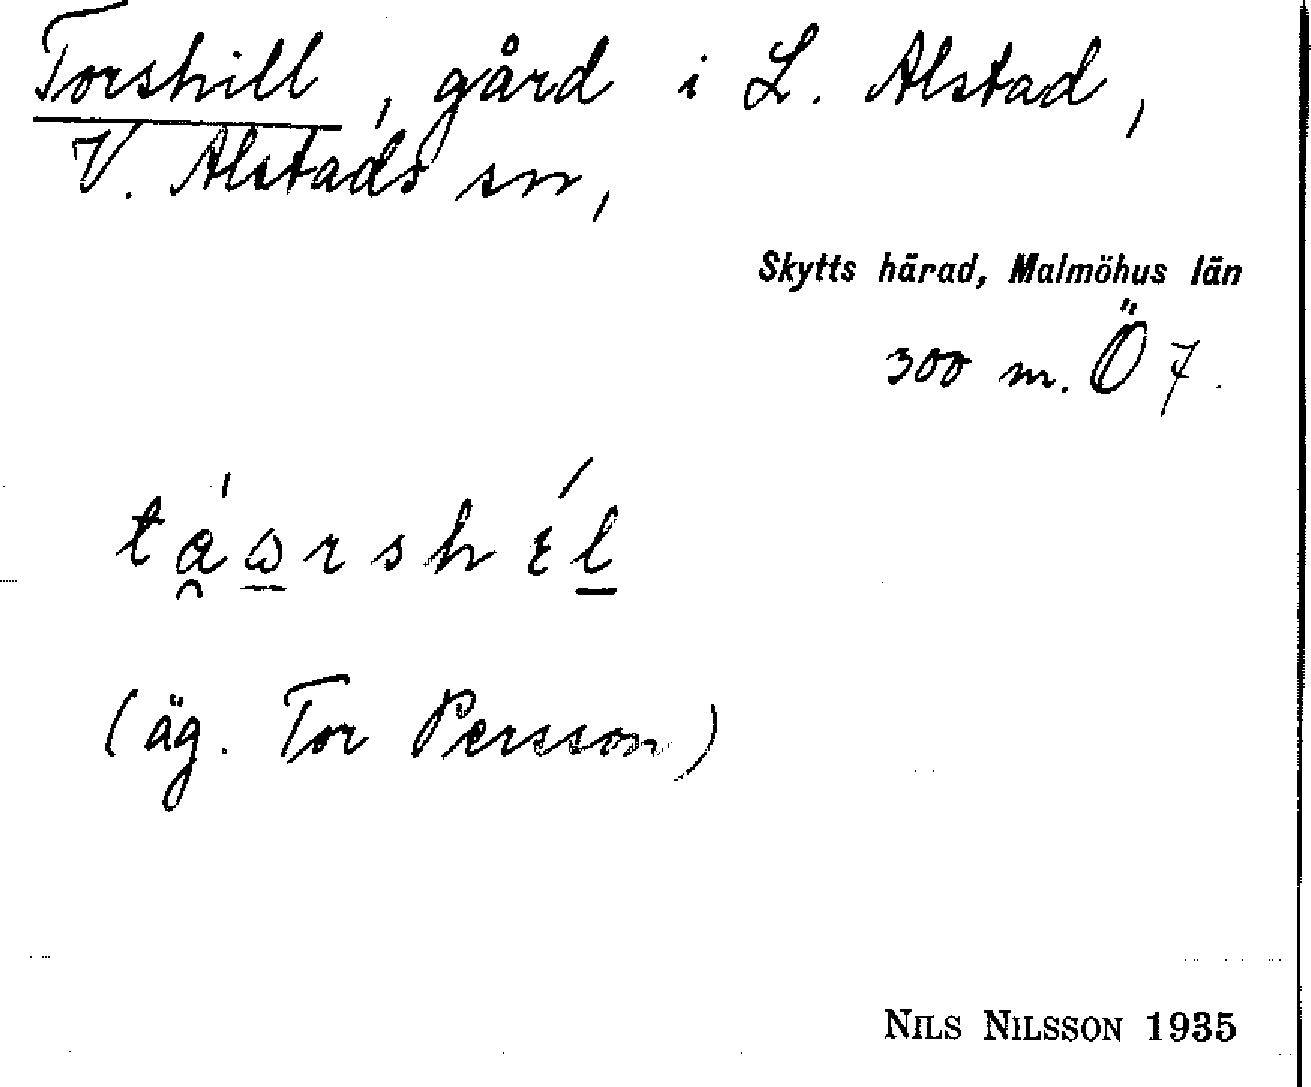 Torshill, gård i L. Alstad,
V. Alstads sn,
Skytts härad, Malmöhus län
300 m. Ö 7.
(äg. Tor Persson)
NILS NILSSON 1935